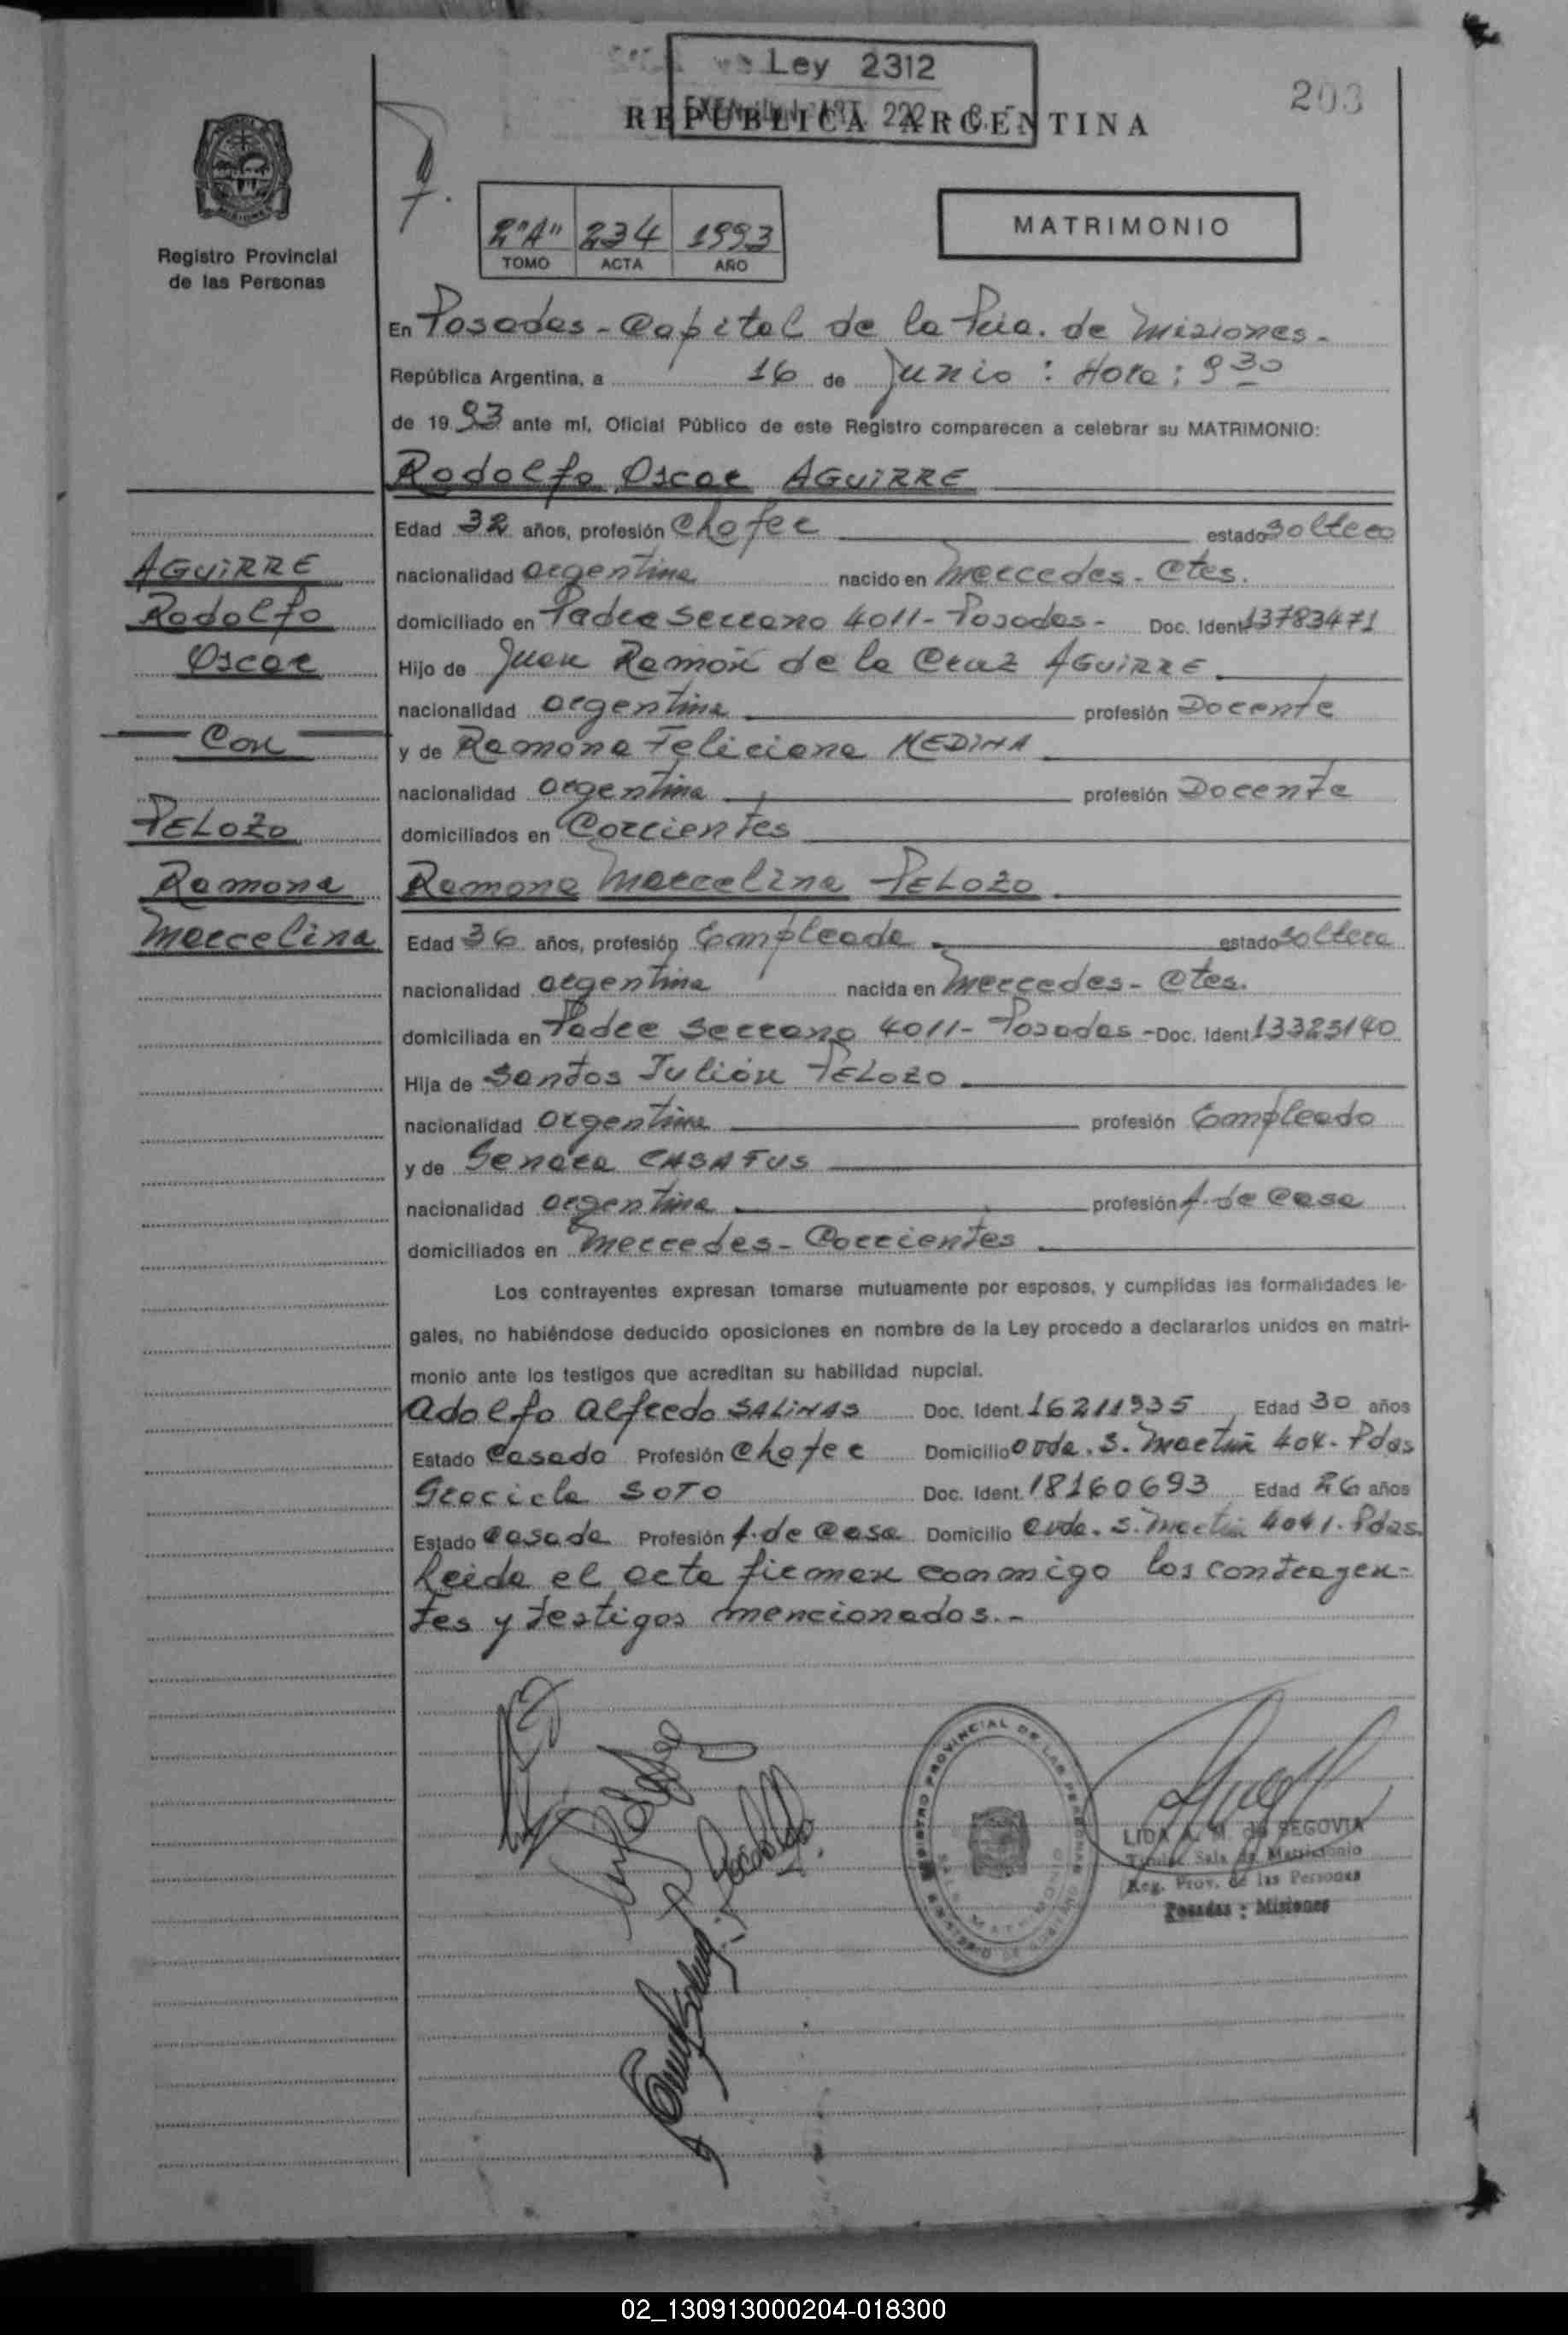 Ley 2312
203
REPUBLICA ARGENTINA
Registro Provincial
de las Personas
2"A" 234 1993
TOMO ACTA AÑO
MATRIMONIO
En Posadas - Capital de la Pcia. de Misiones.
República Argentina, a 16 de Junio : Hora: 9 30
de 19 93 ante mí, Oficial Público de este Registro comparecen a celebrar su MATRIMONIO:
Rodolfo Oscar AGUIRRE
Edad 32 años, profesión Chofer estado soltero
AGUIRRE
nacionalidad argentina nacido en Mercedes - Ctes.
Rodolfo
domiciliado en Padre Serrano 4011 - Posadas - Doc. Ident. 13783471
Oscar
Hijo de Juan Ramón de la Cruz AGUIRRE
nacionalidad argentina profesión Docente
Con
y de Ramona Feliciana MEDINA
nacionalidad argentina profesión Docente
PELOZO
domiciliados en Corrientes
Ramona
Ramona Marcelina PELOZO
Marcelina
Edad 36 años, profesión Empleada estado soltera
nacionalidad argentina nacida en Mercedes - Ctes.
domiciliada en Padre Serrano 4011 - Posadas - Doc. Ident. 13325140
Hija de Santos Julián PELOZO
nacionalidad argentina profesión Empleado
y de Genara CASAFUS
nacionalidad argentina profesión A. de Casa
domiciliados en Mercedes - Corrientes
Los contrayentes expresan tomarse mutuamente por esposos, y cumplidas las formalidades le-
gales, no habiéndose deducido oposiciones en nombre de la Ley procedo a declararlos unidos en matri-
monio ante los testigos que acreditan su habilidad nupcial.
Adolfo Alfredo SALINAS Doc. Ident. 16211935 Edad 30 años
Estado Casado Profesión Chofer Domicilio Avda. S. Martín 404 - Pdas
Graciela SOTO Doc. Ident. 18160693 Edad 26 años
Estado Casada Profesión A. de Casa Domicilio Avda. S. Martín 4041 - Pdas.
Leida el acta firman conmigo los contrayen-
tes y testigos mencionados.-
REGISTRO PROVINCIAL DE LAS PERSONAS
LIDA A. M. de SEGOVIA
Titular Sala de Matrimonio
Reg. Prov. de las Personas
Posadas : Misiones
02_130913000204-018300